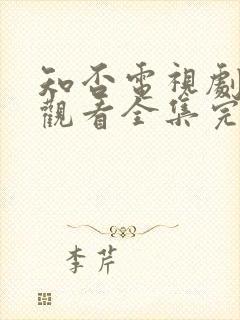 知否電視劇
觀看全集完
李芹